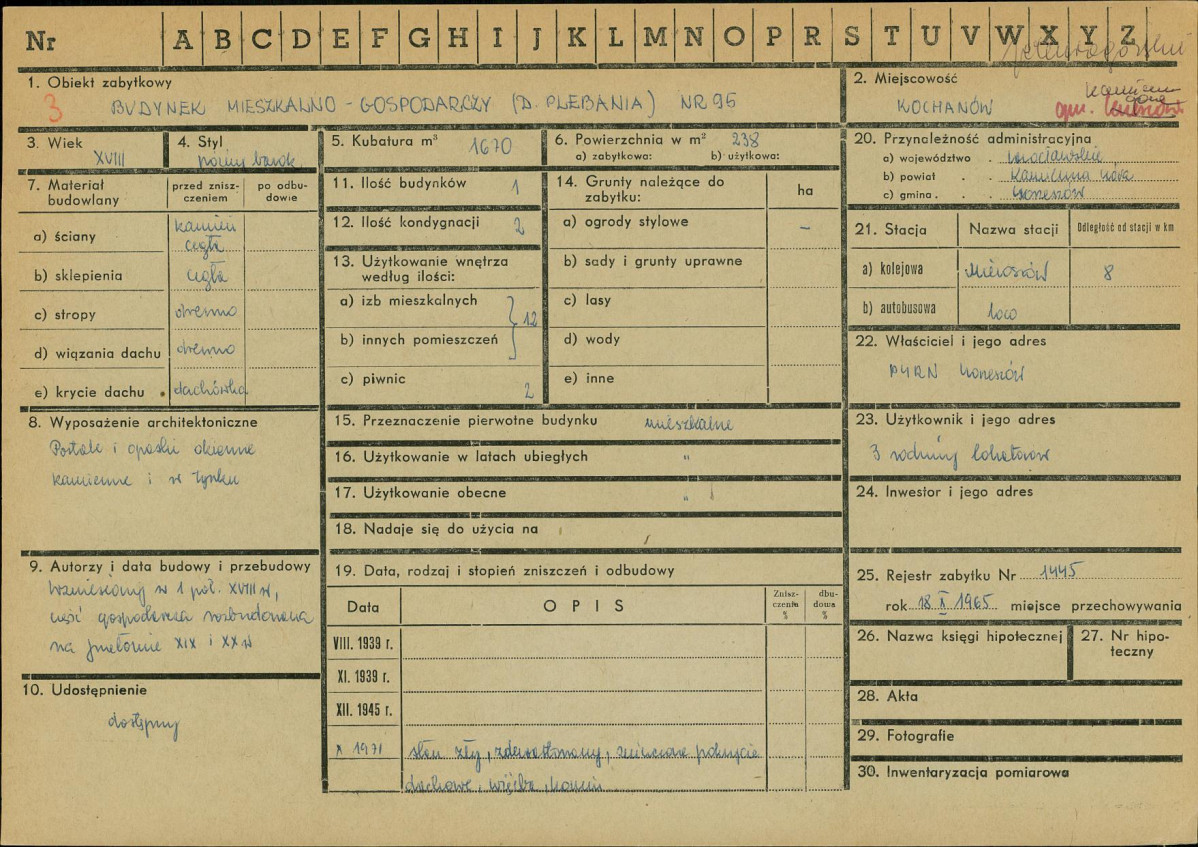 Nr A B C D E F G H I J K L M N O P R S T U V W X Y Z
jeleniogórskie
1. Obiekt zabytkowy
3 BUDYNEK MIESZKALNO - GOSPODARCZY (D. PLEBANIA) NR 95
2. Miejscowość
KOCHANÓW
gm.
kamienna
góra
3. Wiek
XVIII
4. Styl
późny barok
5. Kubatura m³ 1670
6. Powierzchnia w m² 238
a) zabytkowa: b) użytkowa:
20. Przynależność administracyjna
a) województwo . wrocławskie
b) powiat . . Kamienna Góra
c) gmina . . .
7. Materiał budowlany
przed zniszczeniem
po odbudowie
a) ściany kamień
cegła
b) sklepienia cegła
c) stropy drewno
d) wiązania dachu drewno
e) krycie dachu dachówka
11. Ilość budynków 1
12. Ilość kondygnacji 2
13. Użytkowanie wnętrza
według ilości:
a) izb mieszkalnych
12
b) innych pomieszczeń
c) piwnic 2
14. Grunty należące do
zabytku:
ha
a) ogrody stylowe –
b) sady i grunty uprawne
c) lasy
d) wody
e) inne
21. Stacja Nazwa stacji Odległość od stacji w km
a) kolejowa Mieroszów 8
b) autobusowa loco
22. Właściciel i jego adres
8. Wyposażenie architektoniczne
Portale i opaski okienne
kamienne i w tynku
15. Przeznaczenie pierwotne budynku mieszkalne
16. Użytkowanie w latach ubiegłych "
17. Użytkowanie obecne "
18. Nadaje się do użycia na
23. Użytkownik i jego adres
3 rodziny lokatorów
24. Inwestor i jego adres
9. Autorzy i data budowy i przebudowy
Wzniesiony w 1 poł. XVIII w,
część gospodarcza rozbudowana
na przełomie XIX i XX w
10. Udostępnienie
dostępny
19. Data, rodzaj i stopień zniszczeń i odbudowy
Data
OPIS
Zniszczenia %
dbudowa %
VIII. 1939 r.
XI. 1939 r.
XII. 1945 r.
X 1971 stan zły, zdewastowany, zniszczone pokrycie
dachowe, więźba, komin
25. Rejestr zabytku Nr 1445
rok 18 X 1965 miejsce przechowywania
26. Nazwa księgi hipotecznej
27. Nr hipoteczny
28. Akta
29. Fotografie
30. Inwentaryzacja pomiarowa